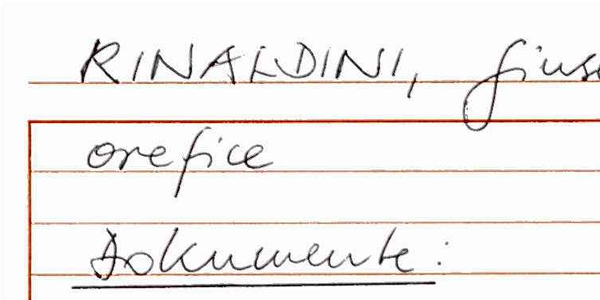 RINALDINI, Giuse
orefice
Dokumente: